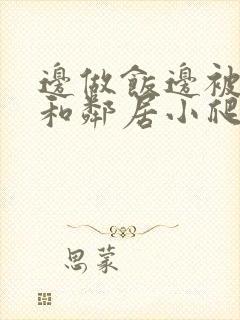 邊做飯邊被
和鄰居小爬
思蒙